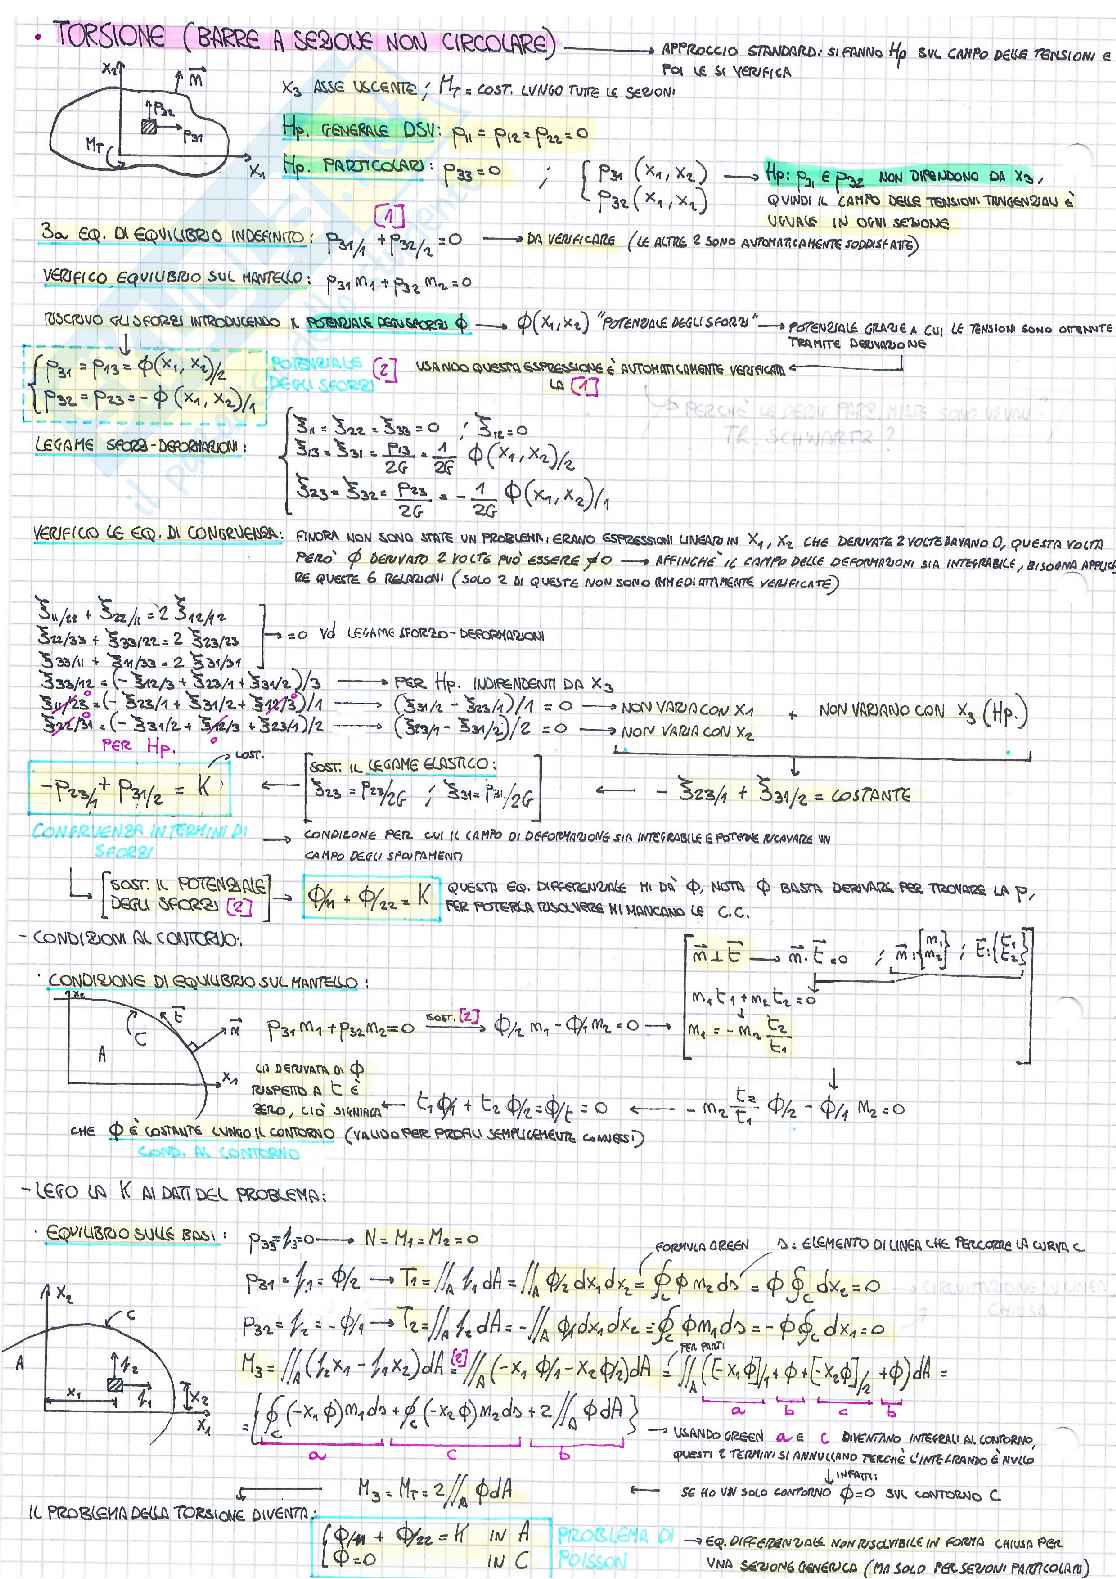 • TORSIONE (BARRE A SEZIONE NON CIRCOLARE) → APPROCCIO STANDARD: SI FANNO Hp SUL CAMPO DELLE TENSIONI E
POI LE SI VERIFICA
X2 n
X3 ASSE USCENTE; MT = COST. LUNGO TUTTE LE SEZIONI
P32
P31
MT
X1
Hp. GENERALE DSV: P11 = P12 = P22 = 0
Hp. PARTICOLARI: P33 = 0 ; { P31 (X1, X2) → Hp: P31 E P32 NON DIPENDONO DA X3,
P32 (X1, X2) QUINDI IL CAMPO DELLE TENSIONI TANGENZIALI È
UGUALE IN OGNI SEZIONE
[1]
3a EQ. DI EQUILIBRIO INDEFINITO: P31/1 + P32/2 = 0 → DA VERIFICARE (LE ALTRE 2 SONO AUTOMATICAMENTE SODDISFATTE)
VERIFICO EQUILIBRIO SUL MANTELLO: P31 m1 + P32 m2 = 0
RISCRIVO GLI SFORZI INTRODUCENDO IL POTENZIALE DEGLI SFORZI ϕ → ϕ(X1, X2) "POTENZIALE DEGLI SFORZI" → POTENZIALE GRAZIE A CUI LE TENSIONI SONO OTTENUTE
TRAMITE DERIVAZIONE
{ P31 = P13 = ϕ(X1, X2)/2 POTENZIALE [2] USANDO QUESTA ESPRESSIONE È AUTOMATICAMENTE VERIFICATA
P32 = P23 = -ϕ(X1, X2)/1 DEGLI SFORZI LA [1]
LEGAME SFORZI-DEFORMAZIONI: { ξ11 = ξ22 = ξ33 = 0 ; ξ12 = 0
ξ13 = ξ31 = P13/2G = 1/2G ϕ(X1, X2)/2
ξ23 = ξ32 = P23/2G = -1/2G ϕ(X1, X2)/1
VERIFICO LE EQ. DI CONGRUENZA: FINORA NON SONO STATE UN PROBLEMA, ERANO ESPRESSIONI LINEARI IN X1, X2 CHE DERIVATE 2 VOLTE DAVANO 0, QUESTA VOLTA
PERÒ ϕ DERIVATO 2 VOLTE PUÒ ESSERE ≠0 → AFFINCHÈ IL CAMPO DELLE DEFORMAZIONI SIA INTEGRABILE, BISOGNA APPLICA
RE QUESTE 6 RELAZIONI (SOLO 2 DI QUESTE NON SONO IMMEDIATAMENTE VERIFICATE)
ξ11/22 + ξ22/11 = 2 ξ12/12
ξ22/33 + ξ33/22 = 2 ξ23/23 → =0 Vd LEGAME SFORZO-DEFORMAZIONI
ξ33/11 + ξ11/33 = 2 ξ31/31
ξ33/12 = (-ξ12/3 + ξ23/1 + ξ31/2)/3 → PER Hp. INDIPENDENTI DA X3
ξ11/23 = (-ξ23/1 + ξ31/2 + ξ12/3)/1 → (ξ31/2 - ξ23/1)/1 = 0 → NON VARIA CON X1 + NON VARIANO CON X3 (Hp.)
ξ22/31 = (-ξ31/2 + ξ12/3 + ξ23/1)/2 → (ξ23/1 - ξ31/2)/2 = 0 → NON VARIA CON X2
PER Hp.
COST.
-P23/1 + P31/2 = K ← [ SOST. IL LEGAME ELASTICO:
ξ23 = P23/2G ; ξ31 = P31/2G ] ← -ξ23/1 + ξ31/2 = COSTANTE
CONGRUENZA IN TERMINI DI → CONDIZIONE PER CUI IL CAMPO DI DEFORMAZIONE SIA INTEGRABILE E POTERNE RICAVARE UN
SFORZI CAMPO DEGLI SPOSTAMENTI
[ SOST. IL POTENZIALE
DEGLI SFORZI [2] ] → ϕ/11 + ϕ/22 = K QUESTA EQ. DIFFERENZIALE MI DÀ ϕ, NOTA ϕ BASTA DERIVARE PER TROVARE LA P,
PER POTERLA RISOLVERE MI MANCANO LE C.C.
- CONDIZIONI AL CONTORNO:
[ m ⊥ t → m · t = 0 ; m: {m1 m2} ; t: {t1 t2}
• CONDIZIONE DI EQUILIBRIO SUL MANTELLO:
m1 t1 + m2 t2 = 0
X2 t C m A X1
P31 m1 + P32 m2 = 0 SOST. [2] → ϕ/2 m1 - ϕ/1 m2 = 0 → m1 = -m2 t2/t1 ]
LA DERIVATA DI ϕ
RISPETTO A t È
ZERO, CIÒ SIGNIFICA ← t1 ϕ/1 + t2 ϕ/2 = ϕ/t = 0 ← -m2 t2/t1 ϕ/2 - ϕ/1 m2 = 0
CHE ϕ È COSTANTE LUNGO IL CONTORNO (VALIDO PER PROFILI SEMPLICEMENTE CONNESSI)
COND. AL CONTORNO
- LEGO LA K AI DATI DEL PROBLEMA:
• EQUILIBRIO SULLE BASI: P33 = f3 = 0 → N = M1 = M2 = 0
FORMULA GREEN S: ELEMENTO DI LINEA CHE PERCORRE LA CURVA C
P31 = f1 = ϕ/2 → T1 = ∬A f1 dA = ∬A ϕ/2 dx1 dx2 = ∮C ϕ m2 ds = ϕ ∮C dx2 = 0
P32 = f2 = -ϕ/1 → T2 = ∬A f2 dA = -∬A ϕ/1 dx1 dx2 = ∮C ϕ m1 ds = -ϕ ∮C dx1 = 0
X2 C A f2 f1 X1 X2 X1
PER PARTI
M3 = ∬A (f2 x1 - f1 x2) dA [2]= ∬A (-x1 ϕ/1 - x2 ϕ/2) dA = ∬A ([-x1 ϕ]/1 + ϕ + [-x2 ϕ]/2 + ϕ) dA =
a b c b
= { ∮C (-x1 ϕ) m1 ds + ∮C (-x2 ϕ) m2 ds + 2 ∬A ϕ dA }
a c b
→ USANDO GREEN a E c DIVENTANO INTEGRALI AL CONTORNO,
QUESTI 2 TERMINI SI ANNULLANO PERCHÈ L'INTEGRANDO È NULLO
INFATTI:
M3 = MT = 2 ∬A ϕ dA ← SE HO UN SOLO CONTORNO ϕ=0 SUL CONTORNO C
IL PROBLEMA DELLA TORSIONE DIVENTA:
{ ϕ/11 + ϕ/22 = K IN A PROBLEMA DI → EQ. DIFFERENZIALE NON RISOLVIBILE IN FORMA CHIUSA PER
ϕ = 0 IN C POISSON UNA SEZIONE GENERICA (MA SOLO PER SEZIONI PARTICOLARI)